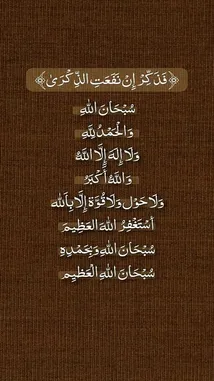 ﴿فَذَكِّرْ إِنْ نَفَعَتِ الذِّكْرَىٰ﴾
سُبْحَانَ اللهِ
وَالْحَمْدُ لِلَّهِ
وَلَا إِلَهَ إِلَّا اللَّهُ
وَاللَّهُ أَكْبَرُ
وَلَا حَوْلَ وَلَا قُوَّةَ إِلَّا بِاللَّهِ
أَسْتَغْفِرُ اللهَ الْعَظِيمَ
سُبْحَانَ اللهِ وَبِحَمْدِهِ
سُبْحَانَ اللهِ الْعَظِيمِ